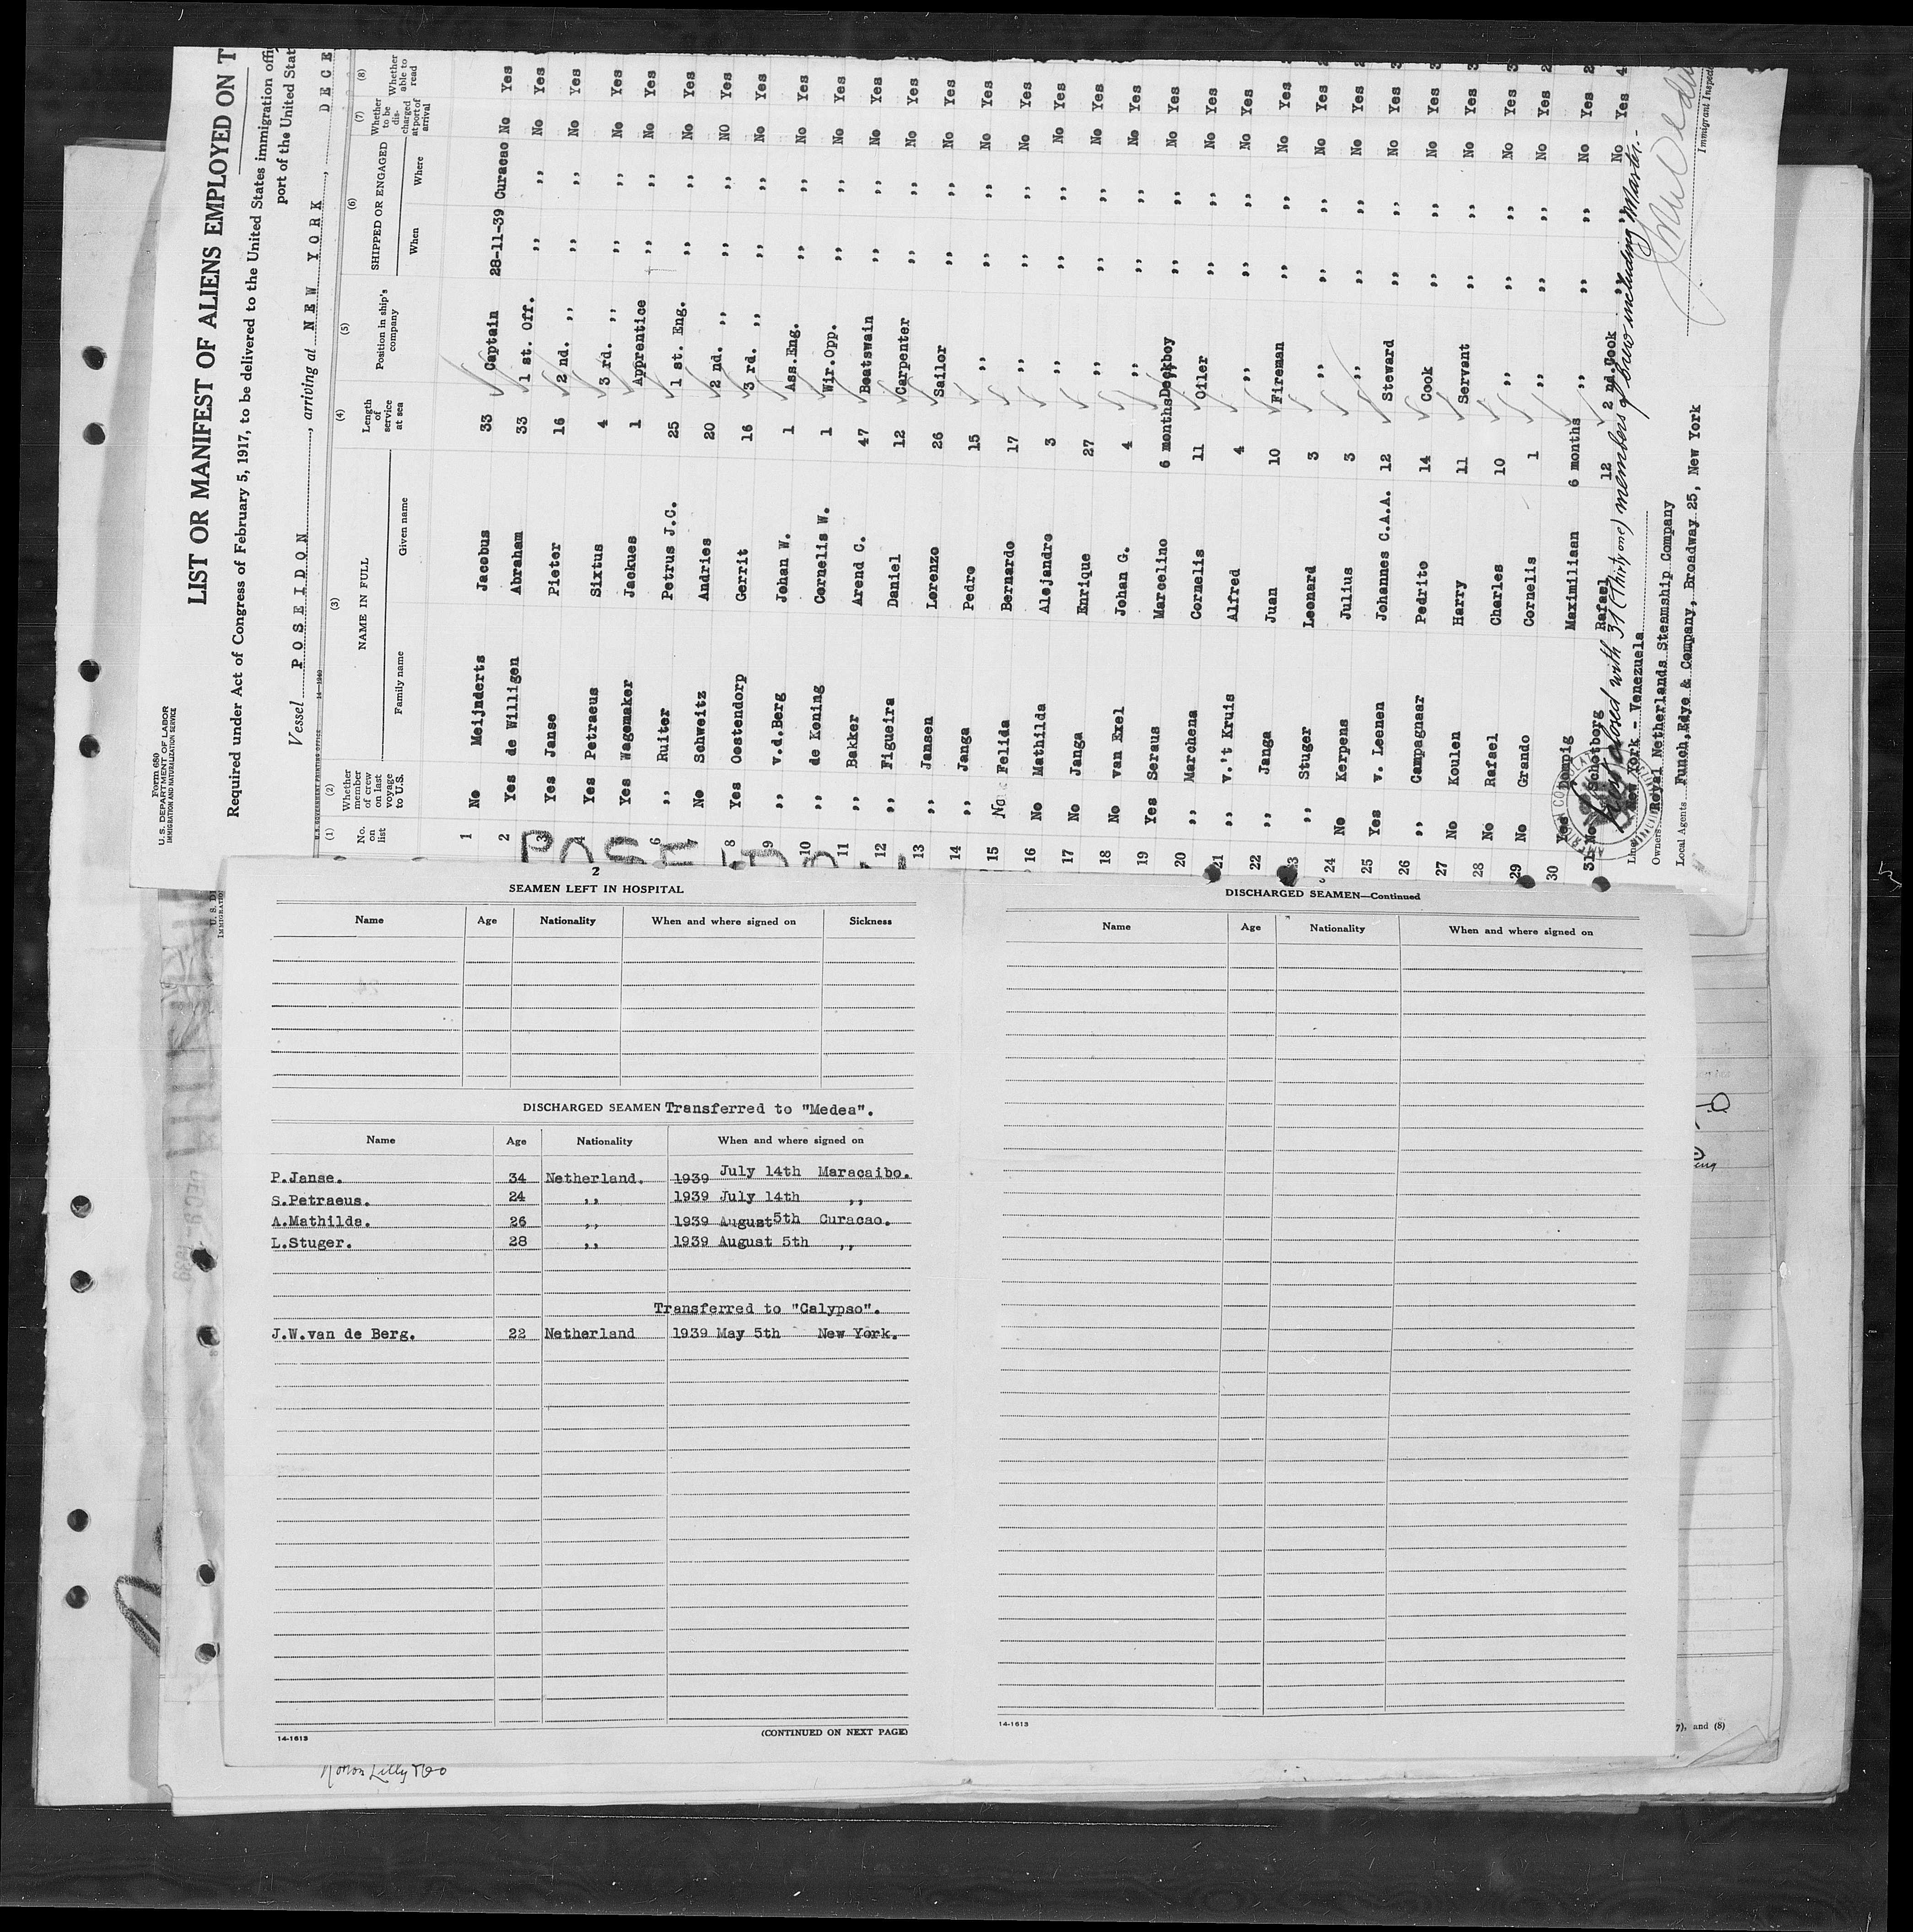 Form 680
U. S. DEPARTMENT OF LABOR
IMMIGRATION AND NATURALIZATION SERVICE
LIST OR MANIFEST OF ALIENS EMPLOYED ON T
Required under Act of Congress of February 5, 1917, to be delivered to the United States immigration offi
port of the United Stat
Vessel POSEIDON, arriving at NEW YORK, DECE
U.S. GOVERNMENT PRINTING OFFICE 14-1240
(1) (2) (3) (4) (5) (6) (7) (8)
No. on list Whether member of crew on last voyage to U.S. NAME IN FULL Length of service at sea Position in ship's company SHIPPED OR ENGAGED Whether to be discharged at port of arrival Whether able to read
Family name Given name When Where
1 No Meijnderts Jacobus 33 Captain 28-11-39 Curacao No Yes
2 Yes de Willigen Abraham 33 1 st. Off. ,, ,, No Yes
3 Yes Janse Pieter 16 2 nd. ,, ,, ,, No Yes
4 Yes Petraeus Sixtus 4 3 rd. ,, ,, ,, No Yes
Yes Wagemaker Jackues 1 Apprentice ,, ,, No Yes
6 ,, Ruiter Petrus J.C. 25 1 st. Eng. ,, ,, No Yes
No Schweitz Andries 20 2 nd. ,, ,, ,, NO Yes
8 Yes Oostendorp Gerrit 16 3 rd. ,, ,, ,, No Yes
9 ,, v.d.Berg Johan W. 1 Ass.Eng. ,, ,, No Yes
10 ,, de Koning Cornelis W. 1 Wir.Opp. ,, ,, No Yes
11 ,, Bakker Arend C. 47 Boatswain ,, ,, No Yes
12 ,, Figueira Daniel 12 Carpenter ,, ,, No Yes
13 ,, Jansen Lorenzo 26 Sailor ,, ,, No Yes
14 ,, Janga Pedro 15 ,, ,, ,, No Yes
15 No Felida Bernardo 17 ,, ,, ,, No Yes
16 No Mathilda Alejandro 3 ,, ,, ,, No Yes
17 No Janga Enrique 27 ,, ,, ,, No Yes
18 No van Exel Johan G. 4 ,, ,, ,, No Yes
19 Yes Seraus Marcelino 6 months Deckboy ,, ,, No Yes
20 ,, Marchena Cornelis 11 Oiler ,, ,, No Yes
21 ,, v.'t Kruis Alfred 4 ,, ,, ,, No Yes
22 ,, Janga Juan 10 Fireman ,, ,, No Yes
23 ,, Stuger Leonard 3 ,, ,, ,, No Yes
24 No Kerpens Julius 3 ,, ,, ,, No Yes
25 Yes v. Leenen Johannes C.A.A. 12 Steward ,, ,, No Yes
26 ,, Campagnaar Pedrito 14 Cook ,, ,, No Yes
27 No Koulen Harry 11 Servant ,, ,, No Yes
28 No Rafael Charles 10 ,, ,, ,, No Yes
29 No Grando Cornelis 1 ,, ,, ,, No Yes
30 Yes Dompig Maximiliaan 6 months ,, ,, ,, No Yes
31 No Schotborg Rafael 12 2 nd.Cook ,, ,, No Yes
closed with 31 (Thirty one) members of crew including Master.-
Line New York - Venezuela
Owners Royal Netherlands Steamship Company
Local Agents Funch,Edye & Company, Broadway 25, New York
Immigrant Inspect
POSEIDON
2
SEAMEN LEFT IN HOSPITAL
Name Age Nationality When and where signed on Sickness
DISCHARGED SEAMEN Transferred to "Medea".
Name Age Nationality When and where signed on
P.Janse. 34 Netherland. 1939 July 14th Maracaibo.
S.Petraeus. 24 ,, 1939 July 14th ,,
A.Mathilda. 26 ,, 1939 August 5th Curacao.
L.Stuger. 28 ,, 1939 August 5th ,,
Transferred to "Calypso".
J.W.van de Berg. 22 Netherland 1939 May 5th New York.
14-1613
(CONTINUED ON NEXT PAGE)
3
DISCHARGED SEAMEN—Continued
Name Age Nationality When and where signed on
14-1613
7), and (8)
Norton Lilly & Co